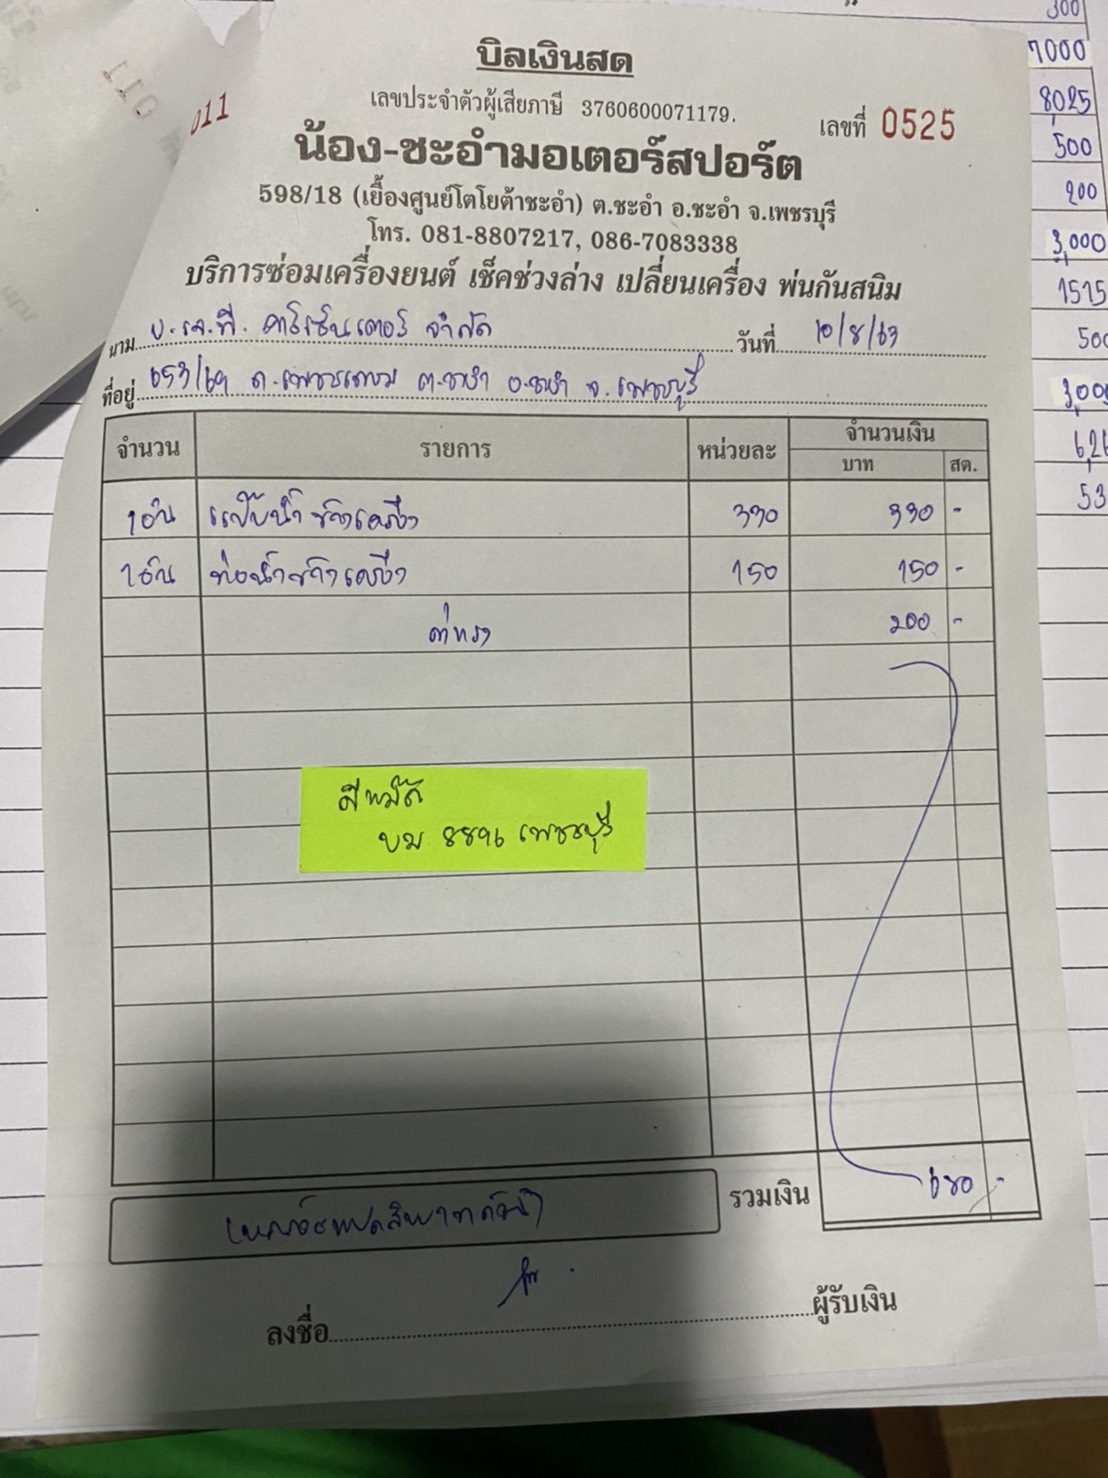 บิลเงินสด
เลขประจำตัวผู้เสียภาษี 3760600071179.
เลขที่ 0525
น้อง-ชะอำมอเตอร์สปอร์ต
598/18 (เยื้องศูนย์โตโยต้าชะอำ) ต.ชะอำ อ.ชะอำ จ.เพชรบุรี
โทร. 081-8807217, 086-7083338
บริการซ่อมเครื่องยนต์ เช็คช่วงล่าง เปลี่ยนเครื่อง พ่นกันสนิม
นาม บ.เจ.พี. คาร์เซ็นเตอร์ จำกัด วันที่ 10/8/63
ที่อยู่ 653/69 ถ.เพชรเกษม ต.ชะอำ อ.ชะอำ จ.เพชรบุรี
จำนวน รายการ หน่วยละ จำนวนเงิน
บาท สต.
1 อัน แป๊บน้ำข้างเครื่อง 330 330 -
1 อัน ท่อน้ำข้างเครื่อง 150 150 -
ค่าแรง 200 -
มีหมัด
บม 8896 เพชรบุรี
รวมเงิน 680 -
(หกร้อยแปดสิบบาทถ้วน)
ลงชื่อ ผู้รับเงิน
011
300
7000
8,025
500
200
3,000
1515
500
3,000
6,26
53